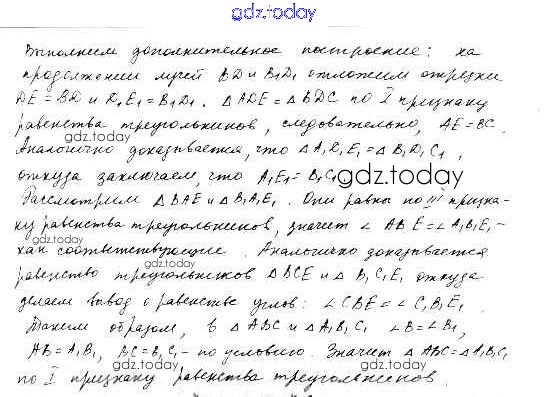 gdz.today
Выполним дополнительное построение: на
продолжении лучей BD и B₁D₁ отложим отрезки
DE = BD и D₁E₁ = B₁D₁. △ADE = △BDC по I признаку
равенства треугольников, следовательно, AE = BC.
gdz.today
Аналогично доказывается, что △A₁D₁E₁ = △B₁D₁C₁,
откуда заключаем, что A₁E₁ = B₁C₁
gdz.today
Рассмотрим △BAE и △B₁A₁E₁. Они равны по III призна-
ку равенства треугольников, значит ∠ABE = ∠A₁B₁E₁ -
gdz.today
как соответствующие. Аналогично доказывается
gdz.today
равенство треугольников △BCE и △B₁C₁E₁ откуда
делаем вывод о равенстве углов: ∠CBE = ∠C₁B₁E₁
Таким образом, в △ABC и △A₁B₁C₁ ∠B = ∠B₁,
AB = A₁B₁, BC = B₁C₁ - по условию. Значит △ABC = △A₁B₁C₁
по I признаку равенства треугольников.
gdz.today